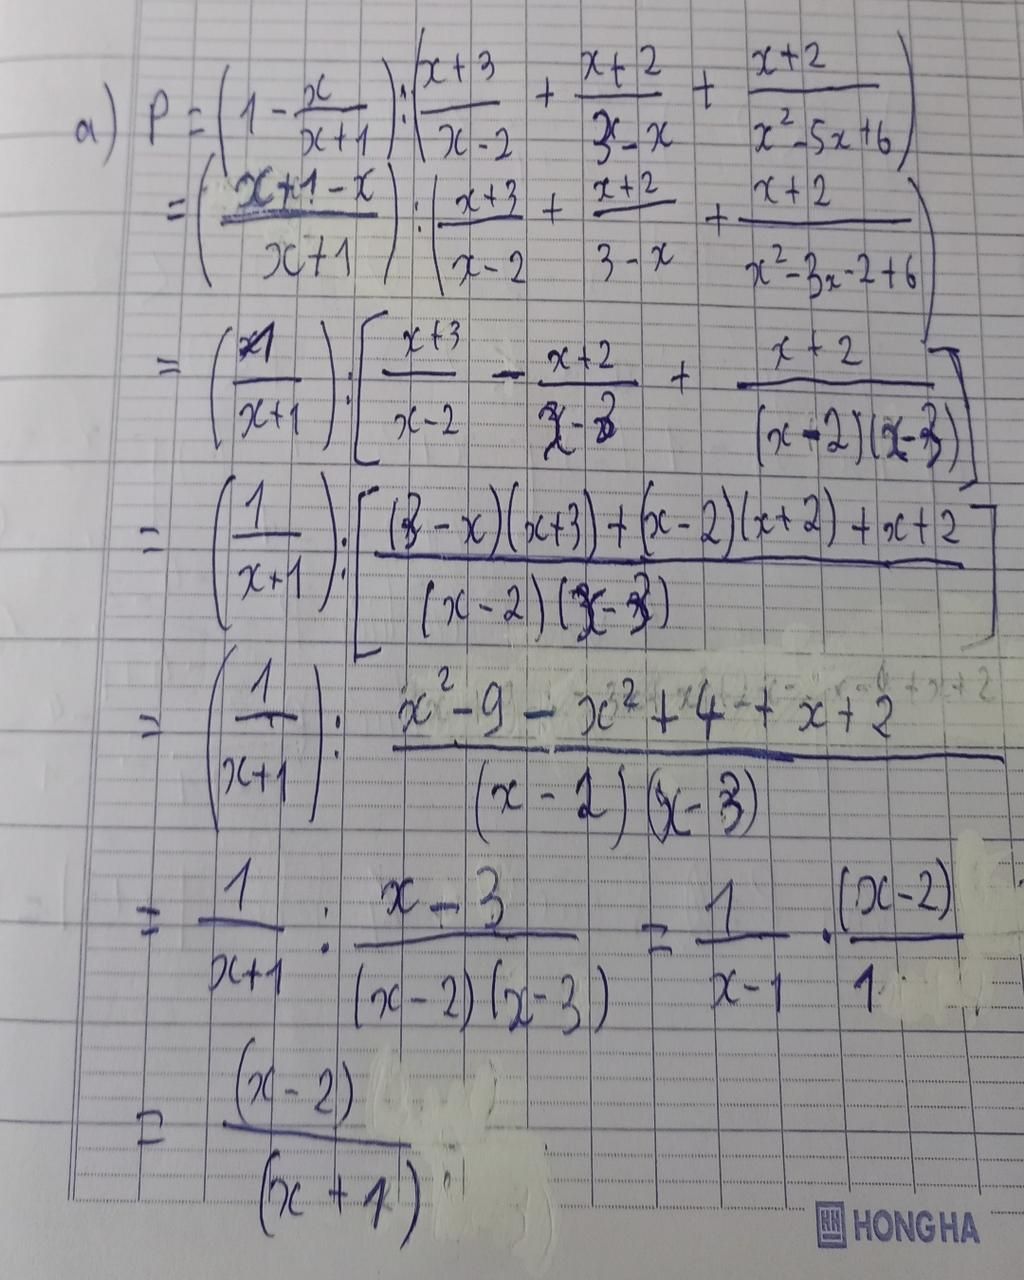 a) P = (1 - x/(x+1)) : ((x+3)/(x-2) + (x+2)/(3-x) + (x+2)/(x²-5x+6))
= ((x+1-x)/(x+1)) : ((x+3)/(x-2) + (x+2)/(3-x) + (x+2)/(x²-3x-2+6))
= (1/(x+1)) : [(x+3)/(x-2) - (x+2)/(x-3) + (x+2)/((x-2)(x-3))]
= (1/(x+1)) : [((3-x)(x+3)+(x-2)(x+2)+x+2)/((x-2)(x-3))]
= (1/(x+1)) : (x²-9-x²+4+x+2)/((x-2)(x-3))
= 1/(x+1) : (x-3)/((x-2)(x-3)) = 1/(x-1) . (x-2)/1
= (x-2)/(x+1)
HONG HA